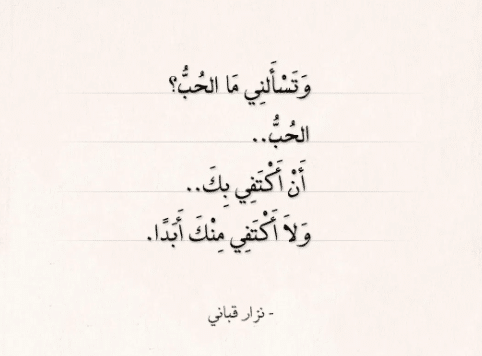 وَتَسْأَلنِي مَا الحُبُّ؟
الحُبُّ..
أَنْ أَكْتَفِي بِكَ..
وَلاَ أَكْتَفِي مِنْكَ أَبَدًا.
- نزار قباني